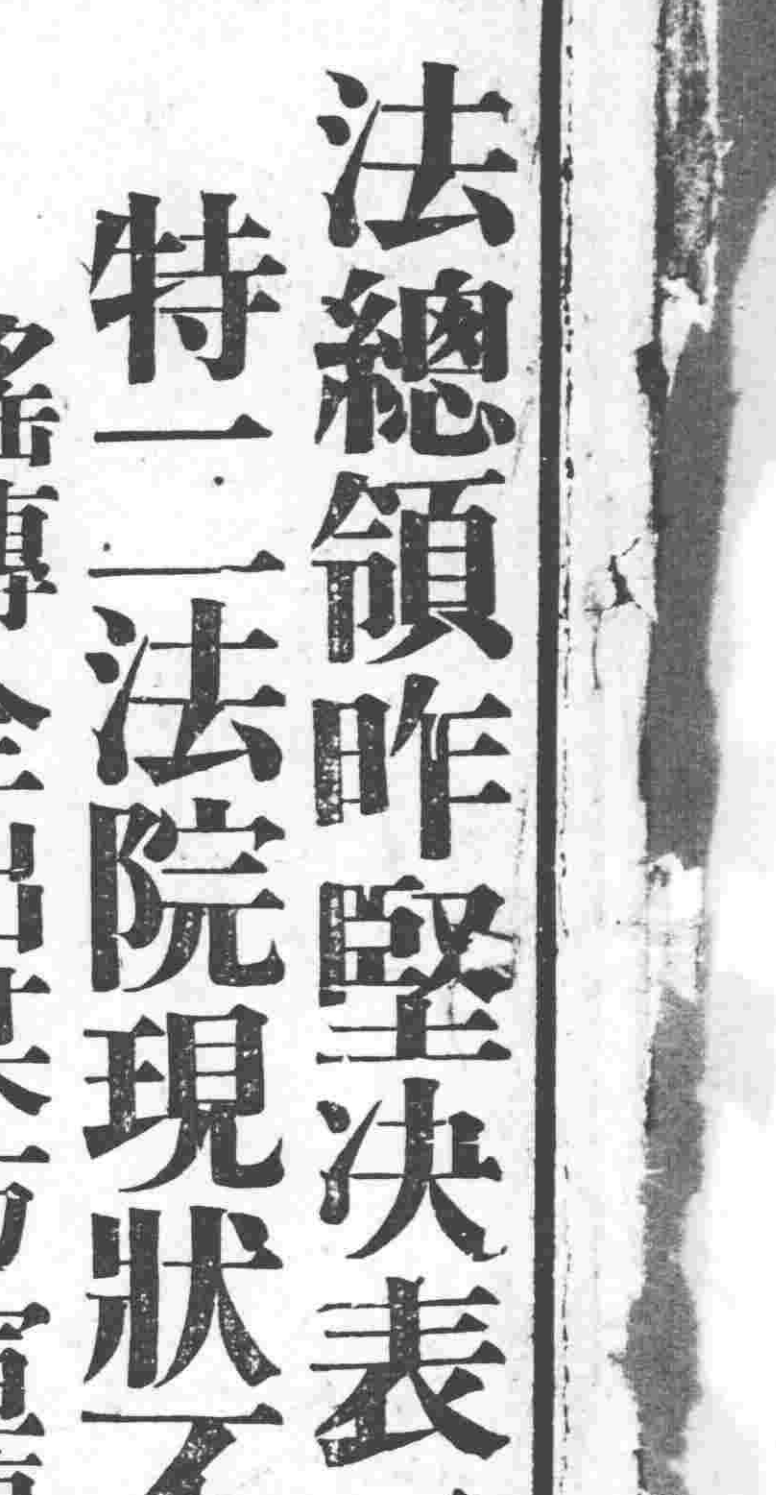 法總領昨堅决表
特二法院現狀不
謠傳全